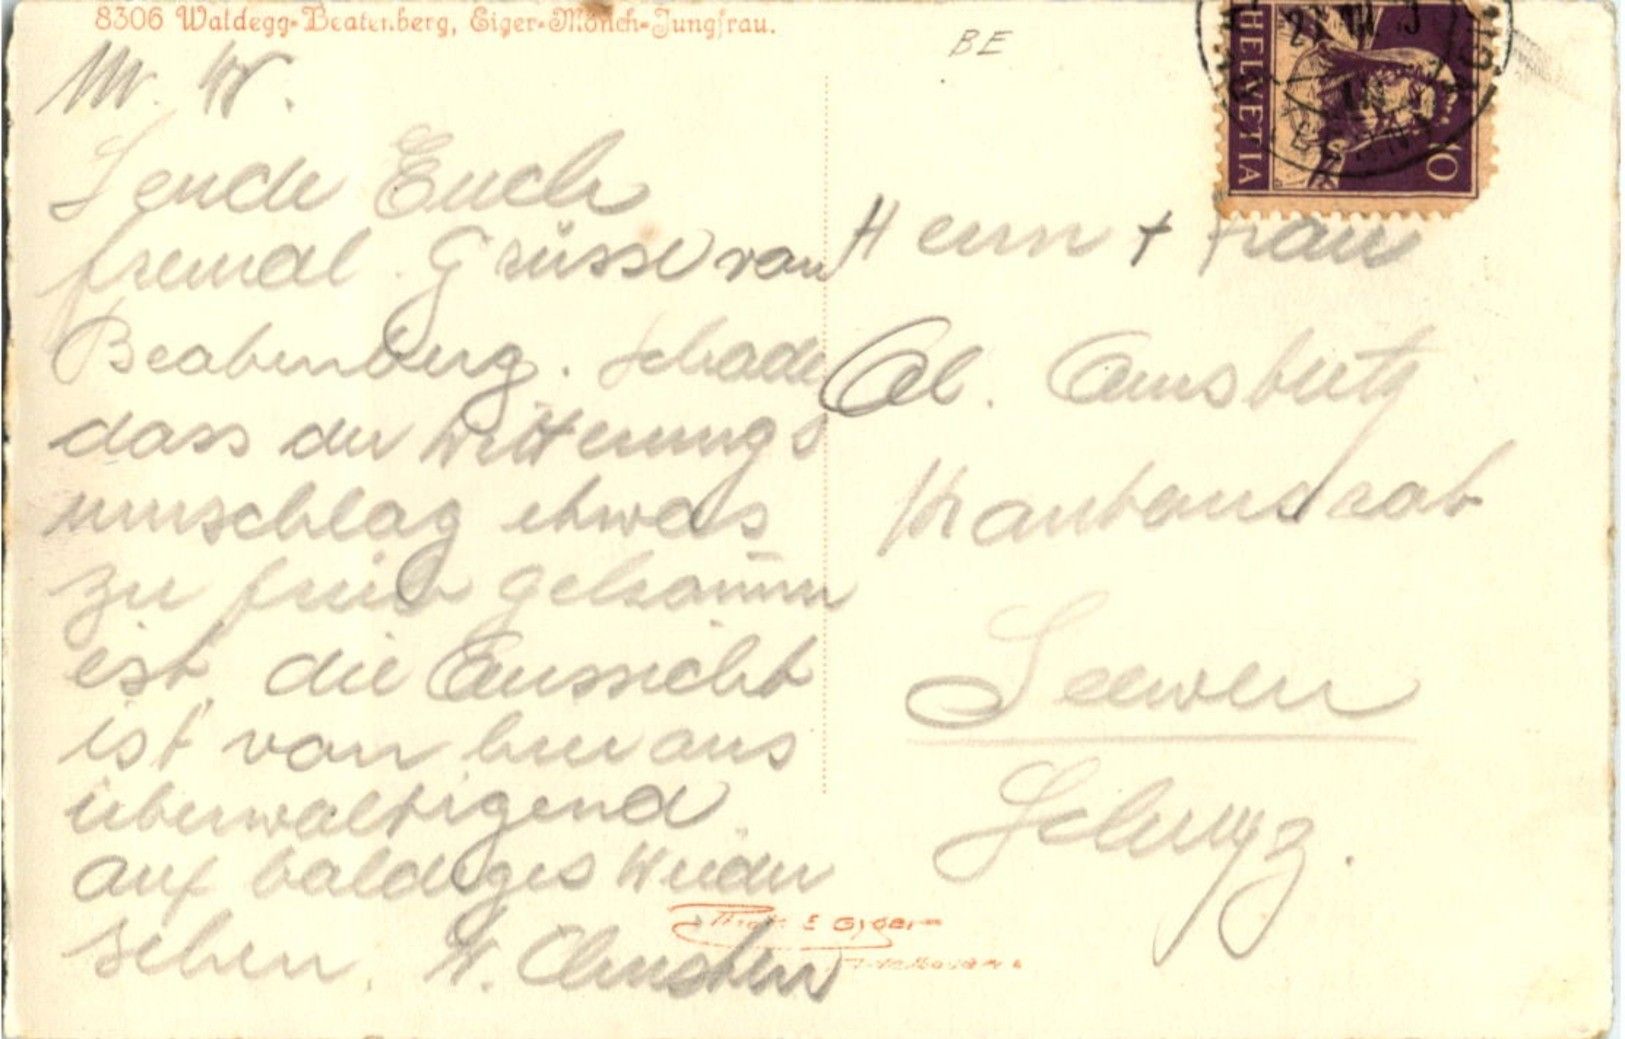 8306 Waldegg-Beatenberg, Eiger-Mönch-Jungfrau.
BE
HELVETIA
10
BERN
Sende Euch
freundl. Grüsse von
Beatenberg. Schade
dass der Witterungs
umschlag etwas
zu früh gekommen
ist, die Aussicht
ist von hier aus
überwältigend.
auf baldiges Wieder
sehen. W.
Herrn + Frau
Al. Amsbutz
Krautbandrat
Seewen
Schwyz.
Phot. E Gyger
Adelboden